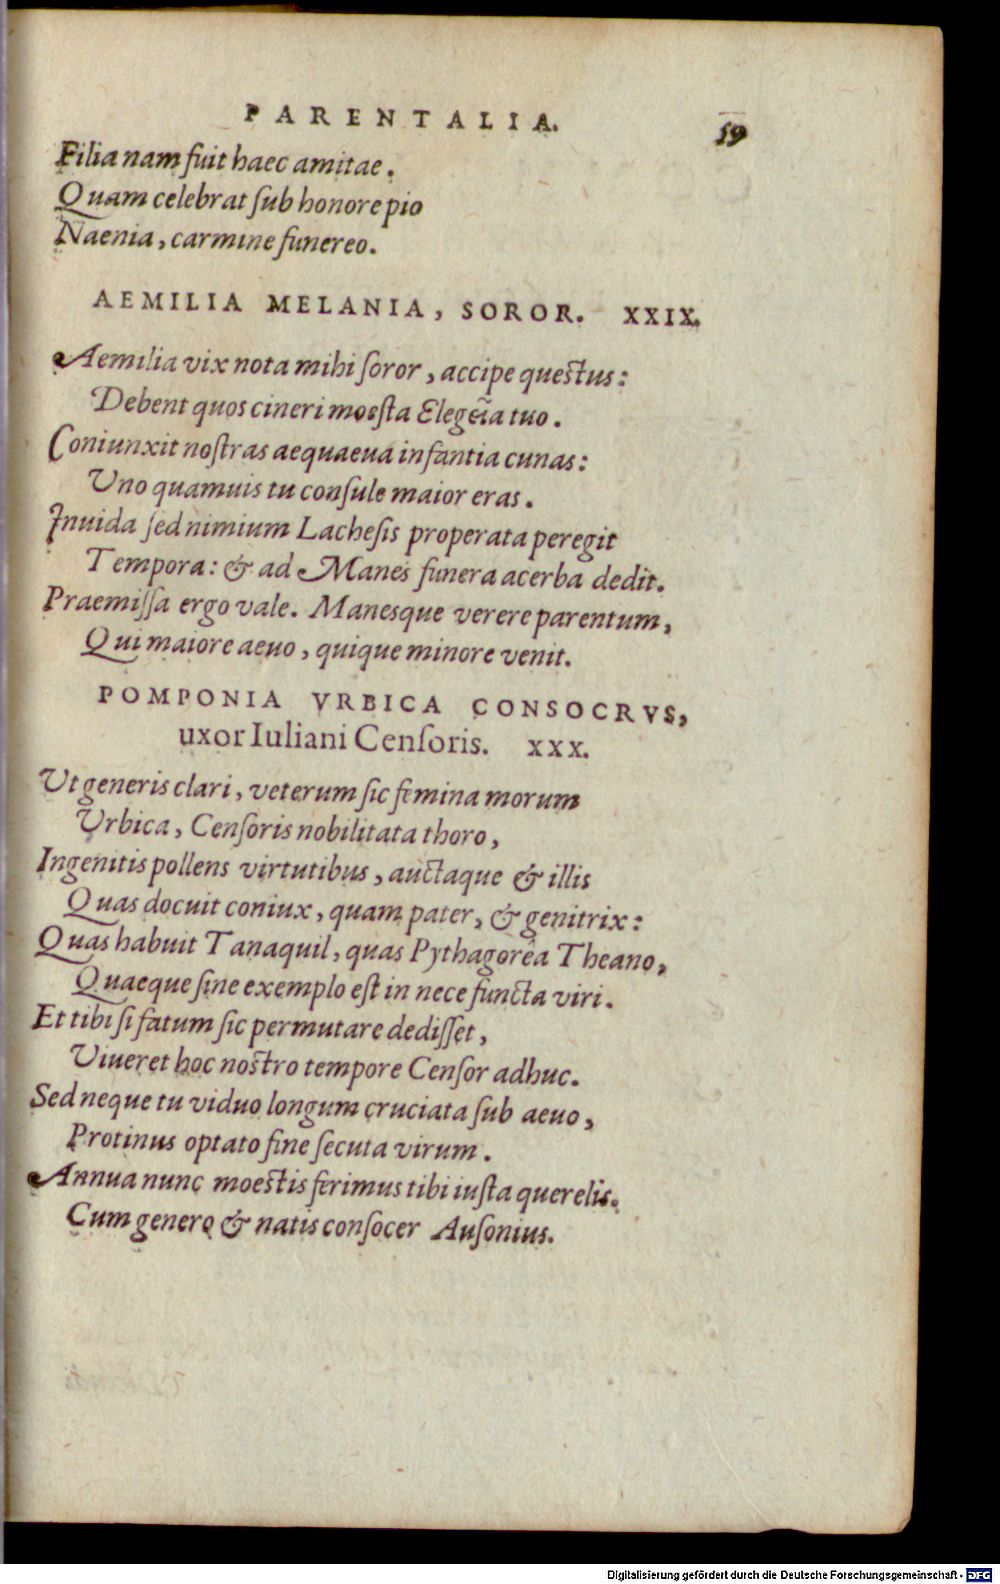 PARENTALIA. 59
Filia nam fuit haec amitae.
Quam celebrat ſub honore pio
Naenia, carmine funereo.
AEMILIA MELANIA, SOROR. XXIX.
Aemilia vix nota mihi ſoror, accipe queſtus:
Debent quos cineri moeſta Elegeîa tuo.
Coniunxit noſtras aequaeua infantia cunas:
Uno quamuis tu conſule maior eras.
Inuida ſed nimium Lacheſis properata peregit
Tempora: & ad Manes funera acerba dedit.
Praemiſſa ergo vale. Manesque verere parentum,
Qui maiore aeuo, quique minore venit.
POMPONIA VRBICA CONSOCRVS,
uxor Iuliani Cenſoris. XXX.
Ut generis clari, veterum ſic femina morum
Urbica, Cenſoris nobilitata thoro,
Ingenitis pollens virtutibus, auctaque & illis
Quas docuit coniux, quam pater, & genitrix:
Quas habuit Tanaquil, quas Pythagorêa Theano,
Quaeque ſine exemplo eſt in nece functa viri.
Et tibi ſi fatum ſic permutare dediſſet,
Uiueret hoc noſtro tempore Cenſor adhuc.
Sed neque tu viduo longum cruciata ſub aeuo,
Protinus optato fine ſecuta virum.
Annua nunc moeſtis ferimus tibi iuſta querelis.
Cum genero & natis conſocer Auſonius.
Digitalisierung gefördert durch die Deutsche Forschungsgemeinschaft - DFG